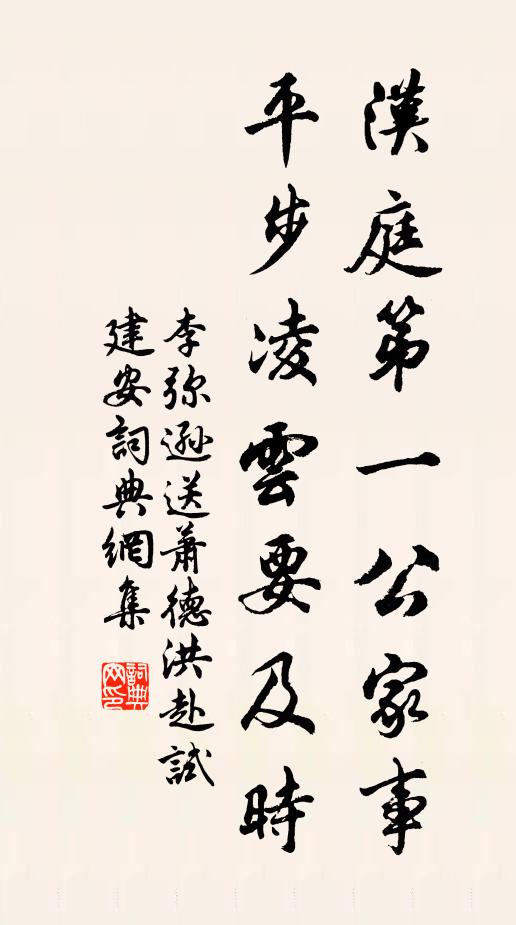 漢庭第一公家事
平步凌雲要及時
李弥遜送蕭德洪赴試
建安詞典網集
詞典網印